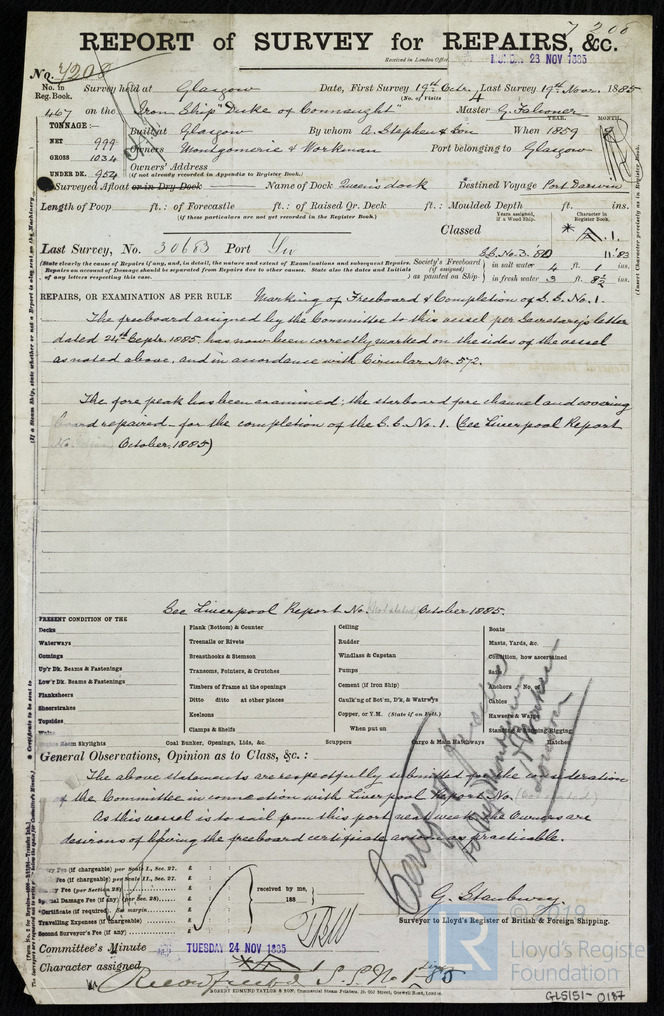 7 208
REPORT of SURVEY for REPAIRS, &c.
Received in London Office
MONDAY 23 NOV 1885
No. 7208
No. in Reg. Book. Survey held at Glasgow Date, First Survey 19th Octr. Last Survey 19th Novr. 1885
(No. of Visits 4
467 on the Iron Ship "Duke of Connaught" Master G. Falconer
TONNAGE:— Built at Glasgow By whom A. Stephen & Son When 1859
YEAR. MONTH.
NET 999 Owners Montgomerie & Workman Port belonging to Glasgow
GROSS 1034 Owners' Address
UNDER DK. 954 (if not already recorded in Appendix to Register Book.)
Surveyed Afloat or in Dry Dock Name of Dock Queen's dock Destined Voyage Port Darwin
Length of Poop ft.: of Forecastle ft.: of Raised Qr. Deck ft.: Moulded Depth ft. ins.
(if these particulars are not yet recorded in the Register Book.)
Years assigned, if a Wood Ship. Character in Register Book.
Classed
Last Survey, No. 30683 Port Liv S.S. No. 3. 11.83
(State clearly the cause of Repairs if any, and, in detail, the nature and extent of Examinations and subsequent Repairs.
Repairs on account of Damage should be separated from Repairs due to other causes. State also the dates and Initials
of any letters respecting this case.
Society's Freeboard (if assigned) as painted on Ship: in salt water 4 ft. 1 ins.
in fresh water 3 ft. 8½ ins.
REPAIRS, OR EXAMINATION AS PER RULE Marking of Freeboard & Completion of S.S. No. 1.
The freeboard assigned by the Committee to this vessel per Secretary's letter
dated 24th Septr. 1885, has now been correctly marked on the sides of the vessel
as noted above, and in accordance with Circular No. 572.
The fore peak has been examined; the starboard fore channel and covering
board repaired for the completion of the S.S. No. 1. (See Liverpool Report
No. October, 1885)
See Liverpool Report No. October 1885.
PRESENT CONDITION OF THE
Decks
Waterways
Comings
Up'r Dk. Beams & Fastenings
Low'r Dk. Beams & Fastenings
Planksheers
Sheerstrakes
Topsides
Wales
Engine Room Skylights
Plank (Bottom) & Counter
Treenails or Rivets
Breasthooks & Stemson
Transoms, Pointers, & Crutches
Timbers of Frame at the openings
Ditto ditto at other places
Keelsons
Clamps & Shelfs
Coal Bunker, Openings, Lids, &c.
Ceiling
Rudder
Windlass & Capstan
Pumps
Cement (if Iron Ship)
Caulk'ng of Bot'm, D'k, & Watr'ys
Copper, or Y.M. (State if on Felt.)
When put on
Scuppers
Cargo & Main Hatchways
Boats
Masts, Yards, &c.
Condition, how ascertained
Sails
Anchors No. of
Cables
Hawsers & Warps
Standing & Running Rigging
Hatches
General Observations, Opinion as to Class, &c.:
The above statements are respectfully submitted for the consideration
of the Committee in connection with Liverpool Report No. (Not stated)
As this vessel is to sail from this port next week the Owners are
desirous of having the freeboard certificate as soon as practicable.
Fee (if chargeable) per Scale I., Sec. 27. £
Fee (if chargeable) per Scale II., Sec. 27. £
Fee (per Section 28) £
Special Damage Fee (if any) (per Sec. 28). £
*Certificate (if required). See margin. £
Travelling Expenses (if chargeable) £
Second Surveyor's Fee (if any) £
received by me,
188
G. Stanbury
Surveyor to Lloyd's Register of British & Foreign Shipping.
Committee's Minute TUESDAY 24 NOV 1885
Character assigned
S.S. No 1 85
ROBERT EDMUND TAYLOR & SON, Commercial Steam Printers, 19, Old Street, Goswell Road, London.
© 2019
Lloyd's Register
Foundation
GLS151-0187